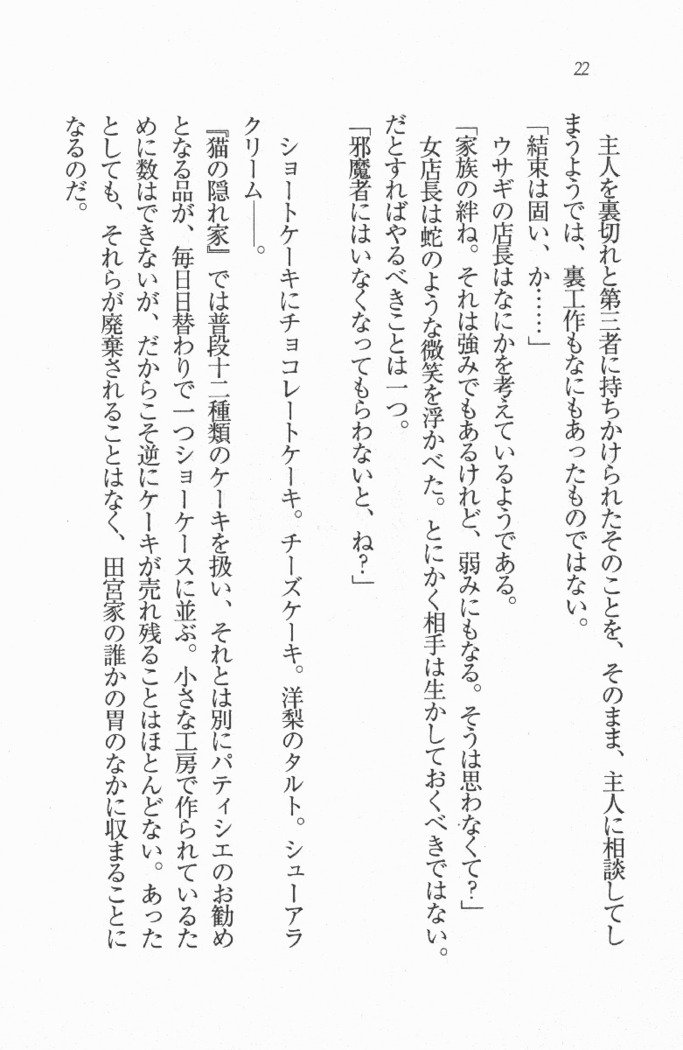 22
　主人を裏切れと第三者に持ちかけられたそのことを、そのまま、主人に相談してし
まうようでは、裏工作もなにもあったものではない。
「結束は固い、か……」
　ウサギの店長はなにかを考えているようである。
「家族の絆ね。それは強みでもあるけれど、弱みにもなる。そうは思わなくて？」
　女店長は蛇のような微笑を浮かべた。とにかく相手は生かしておくべきではない。
だとすればやるべきことは一つ。
「邪魔者にはいなくなってもらわないと、ね？」
　ショートケーキにチョコレートケーキ。チーズケーキ。洋梨のタルト。シューアラ
クリーム――。
『猫の隠れ家』では普段十二種類のケーキを扱い、それとは別にパティシエのお勧め
となる品が、毎日日替わりで一つショーケースに並ぶ。小さな工房で作られているた
めに数はできないが、だからこそ逆にケーキが売れ残ることはほとんどない。あった
としても、それらが廃棄されることはなく、田宮家の誰かの胃のなかに収まることに
なるのだ。